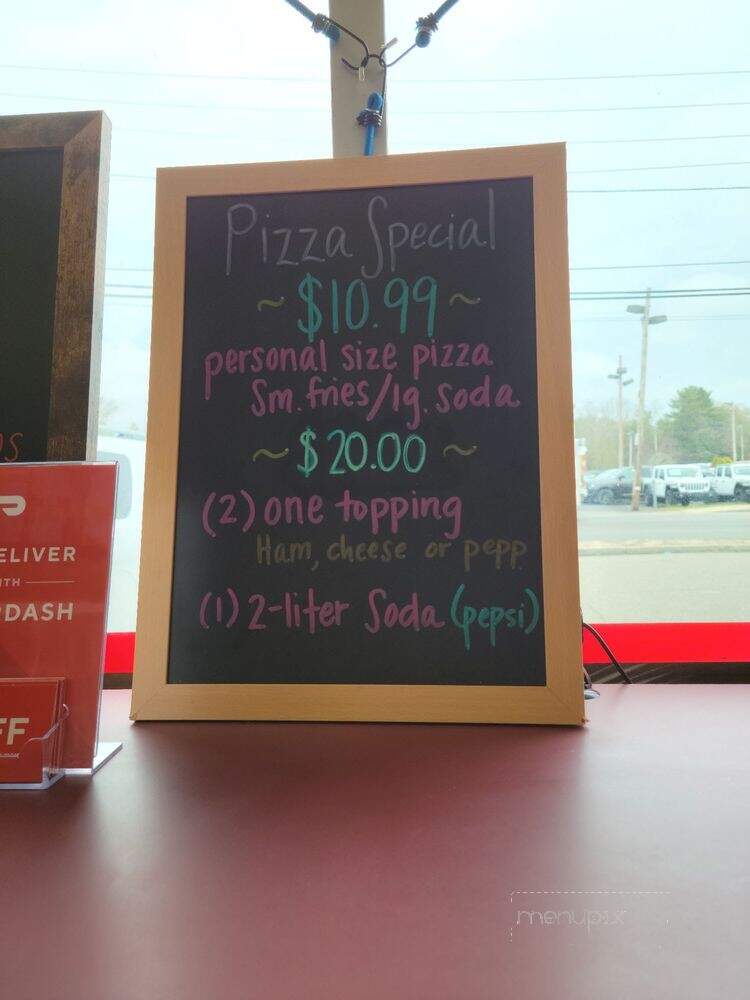 Pizza Special
~ $10.99 ~
personal size pizza
Sm. fries/lg. soda
~ $20.00 ~
(2) one topping
Ham, cheese or pepp
(1) 2-liter Soda (pepsi)
ELIVER
ITH
DASH
FF
menupix